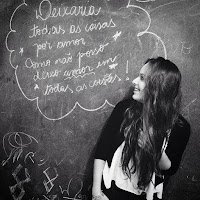 Deixaria
todas as coisas
por amor
Como não posso
deixo amor em
todas as coisas!